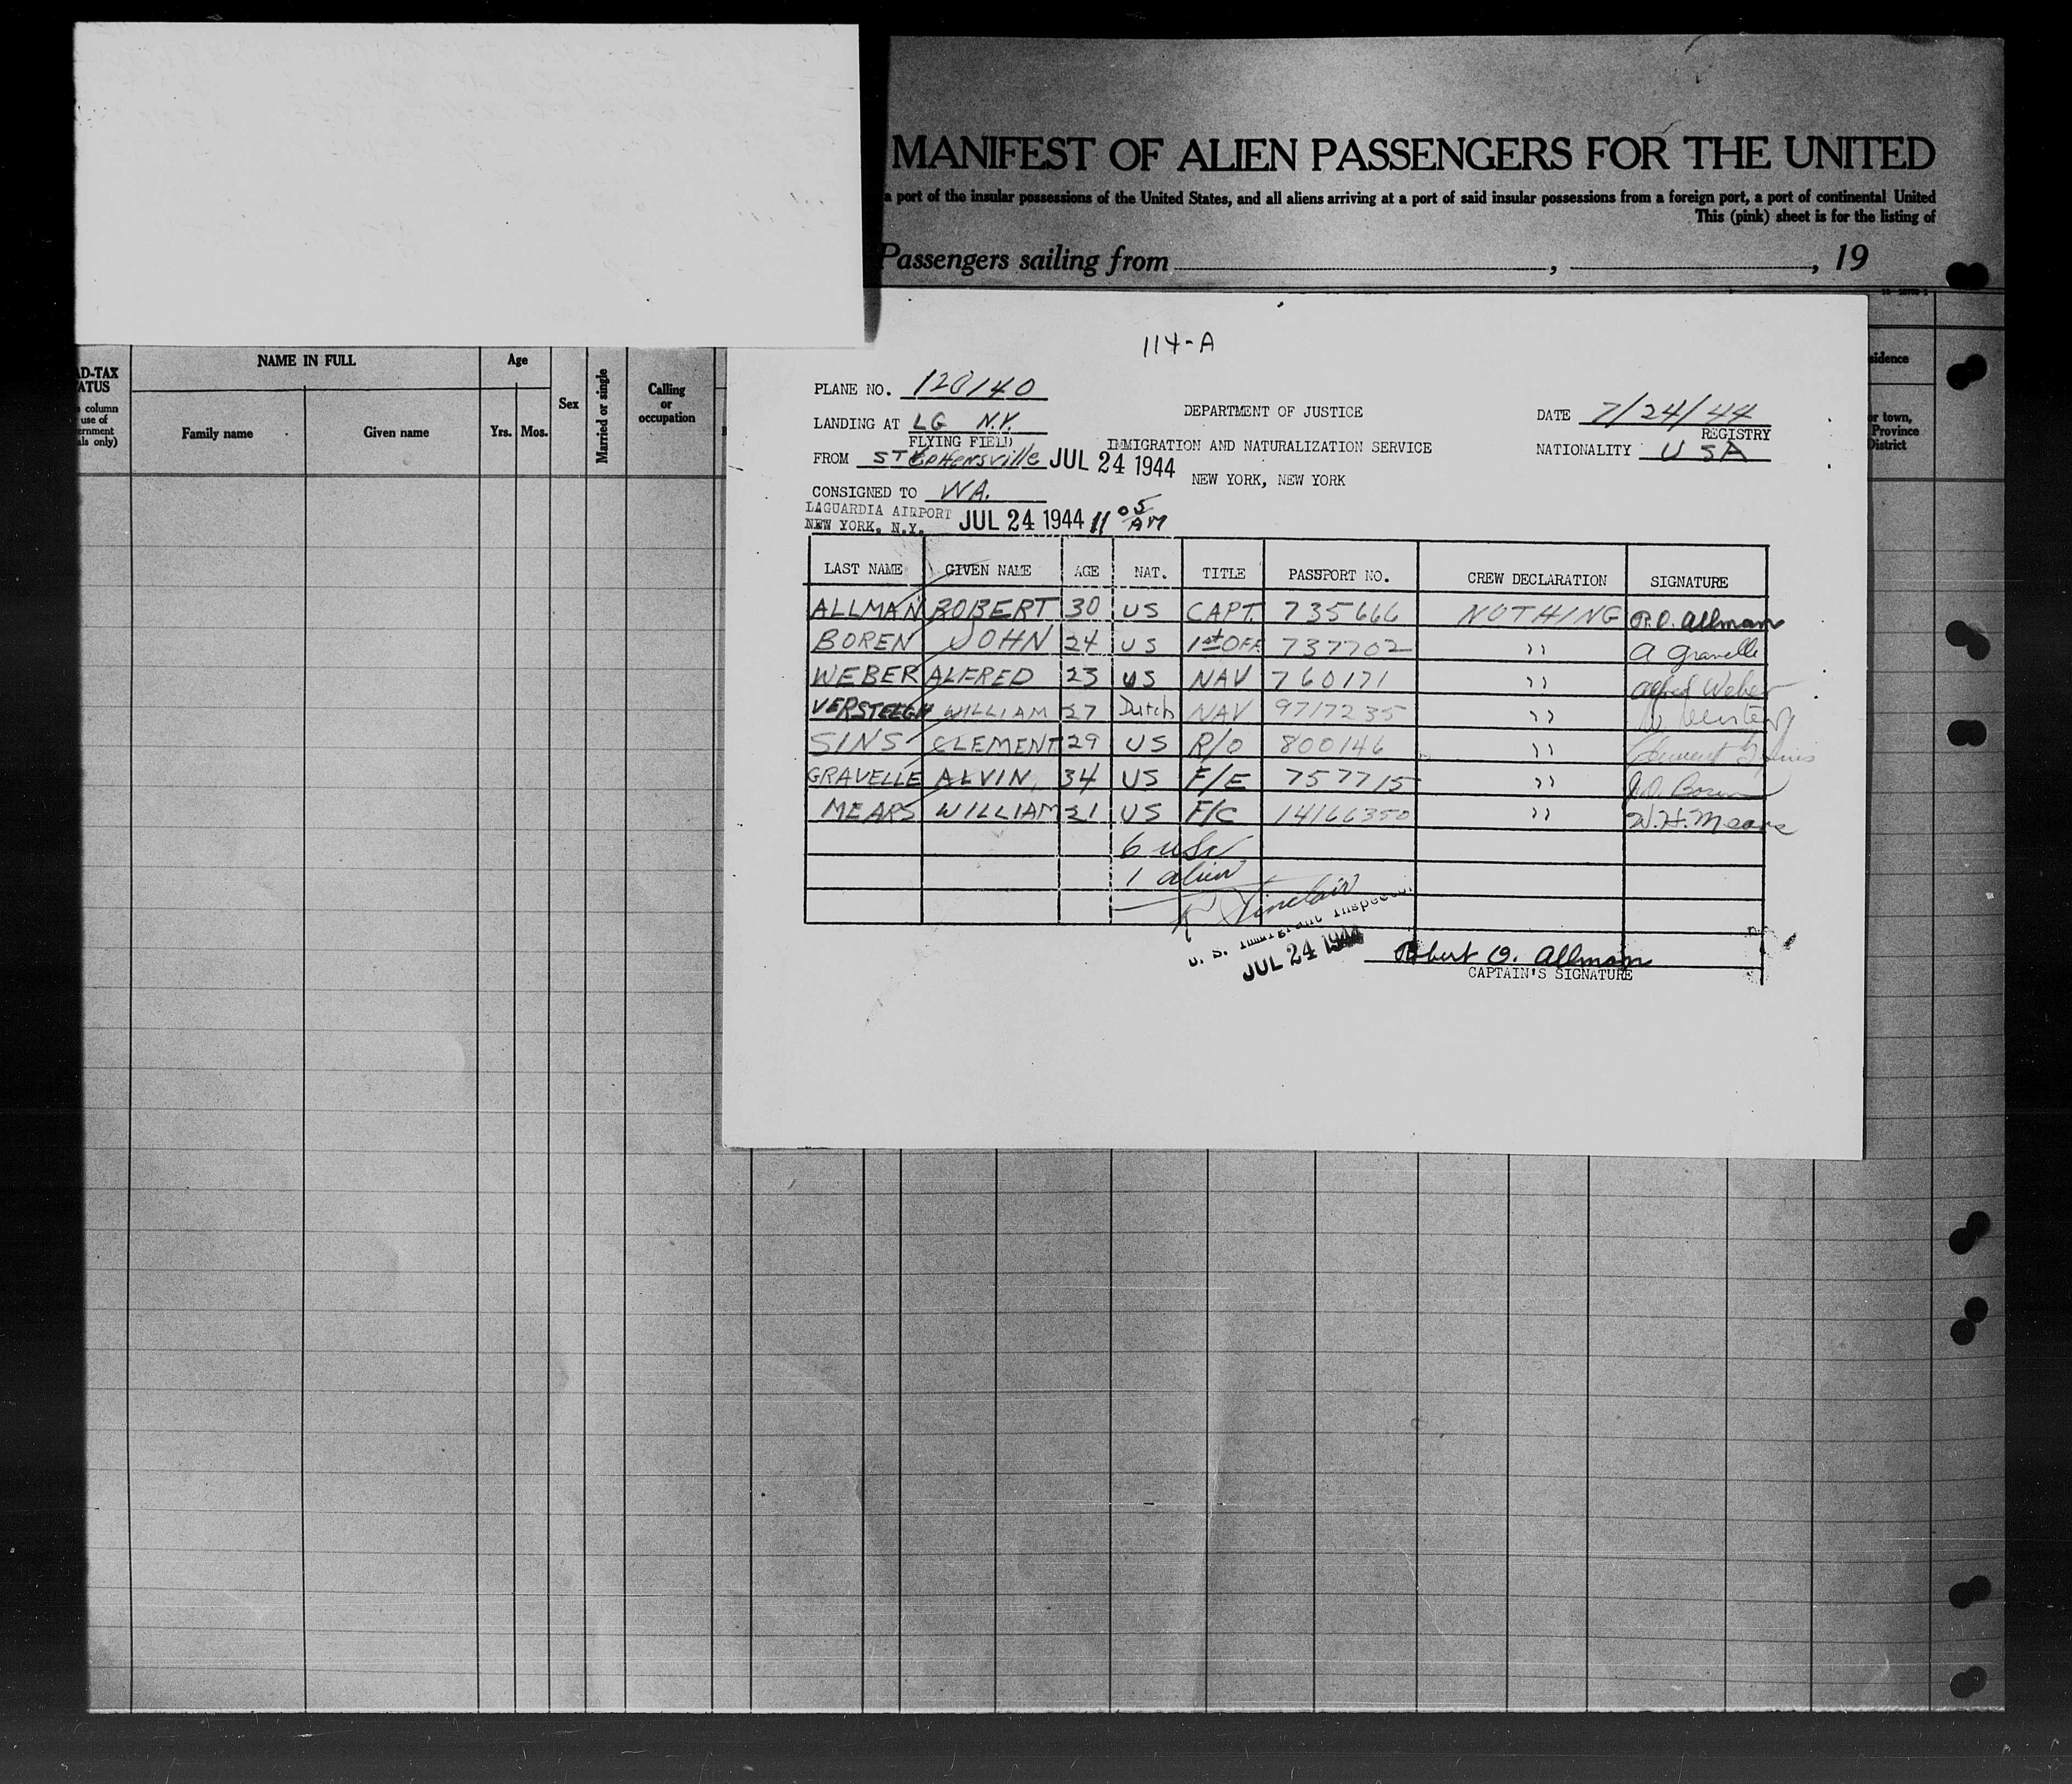 MANIFEST OF ALIEN PASSENGERS FOR THE UNITED
a port of the insular possessions of the United States, and all aliens arriving at a port of said insular possessions from a foreign port, a port of continental United
This (pink) sheet is for the listing of
Passengers sailing from , , 19
AD-TAX
ATUS
column
use of
ernment
als only)
NAME IN FULL
Family name
Given name
Age
Yrs. Mos.
Sex
Married or single
Calling
or
occupation
sidence
or town,
Province
District
114-A
PLANE NO. 120140
LANDING AT LG N.Y.
FLYING FIELD
FROM STEPHENSVILLE JUL 24 1944
CONSIGNED TO WA.
LAGUARDIA AIRPORT
NEW YORK, N.Y. JUL 24 1944 11 05 AM
DEPARTMENT OF JUSTICE
IMMIGRATION AND NATURALIZATION SERVICE
NEW YORK, NEW YORK
DATE 7/24/44
REGISTRY
NATIONALITY USA
LAST NAME GIVEN NAME AGE NAT. TITLE PASSPORT NO. CREW DECLARATION SIGNATURE
ALLMAN ROBERT 30 US CAPT. 735666 NOTHING R.O. Allman
BOREN JOHN 24 US 1st OFF. 737702 " A Gravelle
WEBER ALFRED 23 US NAV 760171 " Alfred Weber
VERSTEEGH WILLIAM 27 Dutch NAV 9717235 "
SINS CLEMENT 29 US R/O 800146 "
GRAVELLE ALVIN 34 US F/E 757715 " J.O. Boren
MEARS WILLIAM 21 US F/C 14166350 " W.H. Mears
6 USC
1 alien
Sinclair
U. S. Immigrant Inspector
JUL 24 1944
Robert O. Allman
CAPTAIN'S SIGNATURE